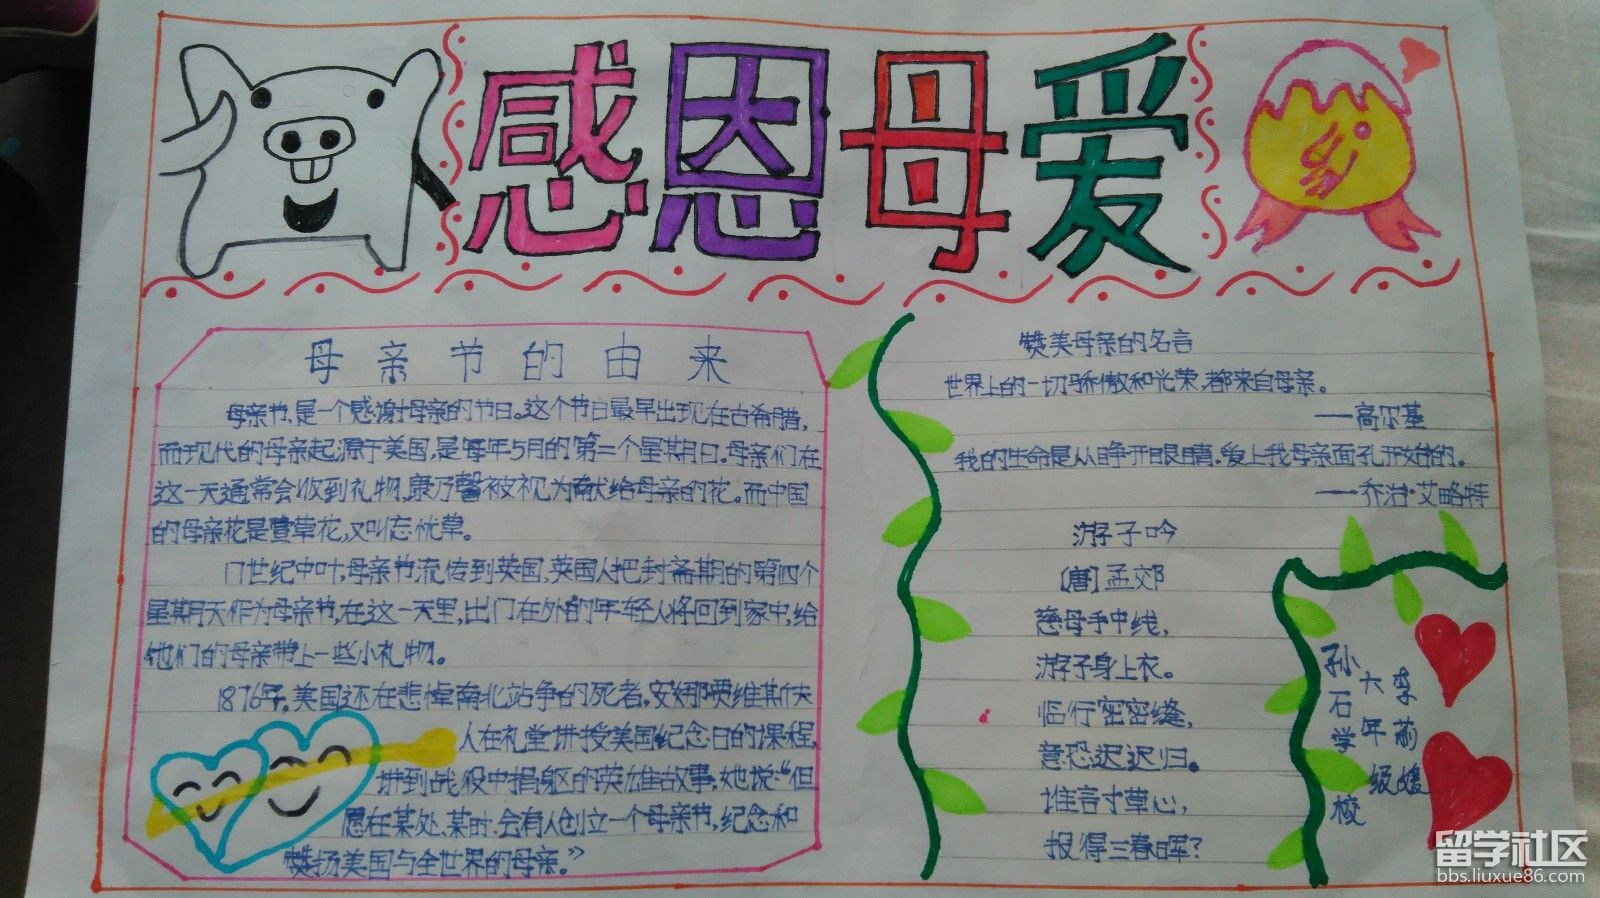 感恩母爱
母亲节的由来
母亲节,是一个感谢母亲的节日。这个节日最早出现在古希腊,
而现代的母亲起源于美国,是每年5月的第二个星期日。母亲们在
这一天通常会收到礼物,康乃馨被视为献给母亲的花。而中国
的母亲花是萱草花,又叫忘忧草。
17世纪中叶,母亲节流传到英国,英国人把封斋期的第四个
星期天作为母亲节,在这一天里,出门在外的年轻人将回到家中,给
他们的母亲带上一些小礼物。
1876年,美国还在悲悼南北站争的死者,安娜·贾维斯夫
人在礼堂讲授美国纪念日的课程,
讲到战役中捐躯的英雄故事,她说:“但
愿在某处、某时,会有人创立一个母亲节,纪念和
赞扬美国与全世界的母亲。”
赞美母亲的名言
世界上的一切骄傲和光荣,都来自母亲。
——高尔基
我的生命是从睁开眼睛,爱上我母亲面孔开始的。
——乔治·艾略特
游子吟
〔唐〕孟郊
慈母手中线,
游子身上衣。
临行密密缝,
意恐迟迟归。
谁言寸草心,
报得三春晖?
孙石学校
六年级
李莉媛
留学社区
bbs.liuxue86.com